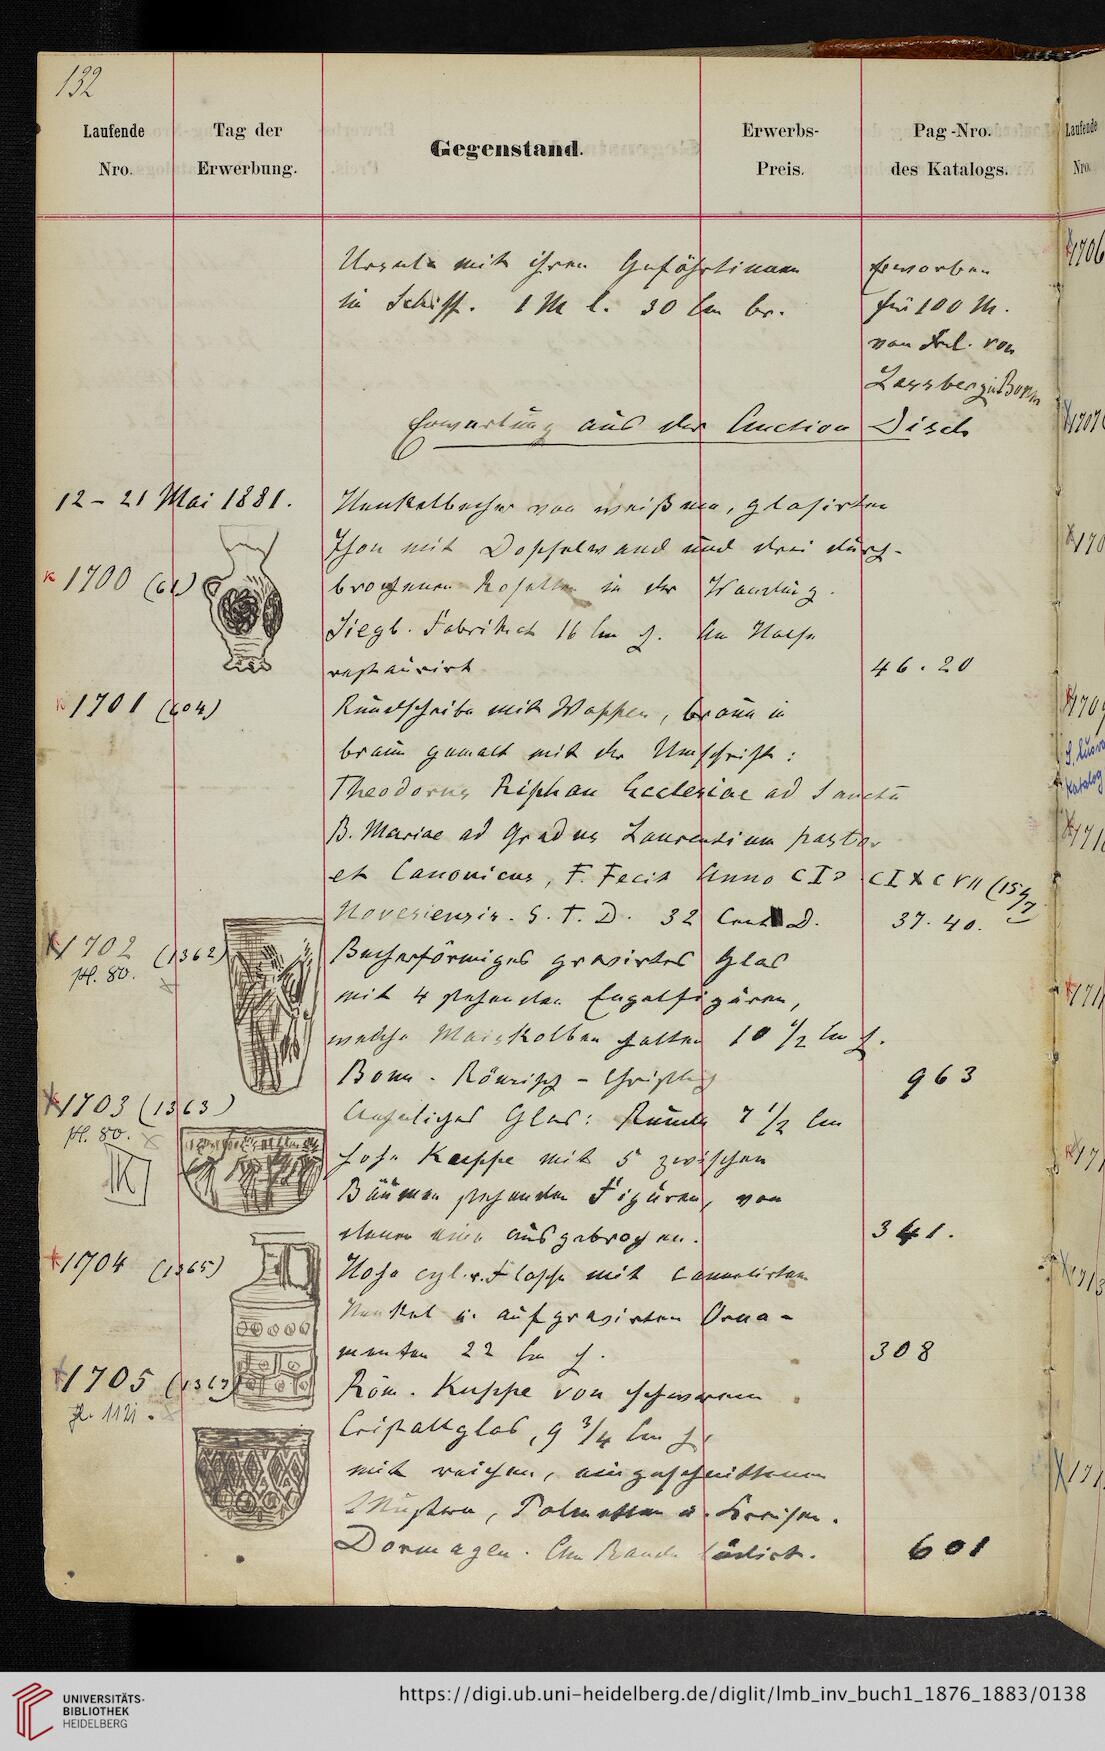 132
Laufende Nro.
Tag der Erwerbung.
Gegenstand.
Erwerbs-Preis.
Pag-Nro. des Katalogs.
Ursula mit ihren Gefährtinnen
in Schiff. 1 M l. 30 Cm br.
Erworben
für 100 M.
von Frl. von
Lassberg in Bonn
Erwerbung aus der Auction Disch
12 – 21 Mai 1881.
Henkelbecher von weißem, glasirten
Thon mit Doppelwand und drei durch-
1700 (61)
brochenen Rosetten in der Wandung.
Siegb. Fabrikat 16 Cm h. Am Halse
restaurirt
46.20
1701 (604)
Rundscheibe mit Wappen, braun in
braun gemalt mit der Umschrift:
Theodorus Riphan Ecclesiae ad Sanctū
B. Mariae ad Gradus Laurentium pastor
et Canonicus, F. Fecit Anno CIↃ CIXCVII (1597)
Novesiensis. S. T. D. 32 Cent D.
37.40.
1702 (1362)
pl. 80.
Becherförmiges gravirtes Glas
mit 4 stehenden Engelfiguren,
welche Maiskolben halten 10 1/2 Cm h.
Bonn - Römisch - Christlich
963
1703 (1363)
pl. 80.
Aehnliches Glas: Runde 7 1/2 Cm
hohe Kuppe mit 5 zwischen
Bäumen stehenden Figuren, von
denen eine ausgebrochen.
341.
1704 (1365)
Hohe cyl. r. Flasche mit cannelirtem
Henkel u. aufgravirten Orna-
menten 22 Cm h.
308
1705 (1367)
Röm. Kuppe von schwerem
Cristallglas, 9 3/4 Cm h.
mit reichen, eingeschnittenen
Mustern, Palmetten u. Kreisen.
Dormagen. Am Rande lädirt.
601
Laufende
Nro.
UNIVERSITÄTS-
BIBLIOTHEK
HEIDELBERG
https://digi.ub.uni-heidelberg.de/diglit/lmb_inv_buch1_1876_1883/0138